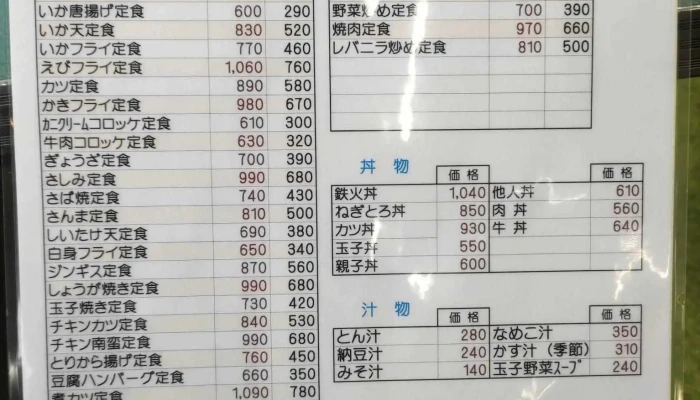 いか唐揚げ定食 600 290
いか天定食 830 520
いかフライ定食 770 460
えびフライ定食 1,060 760
カツ定食 890 580
かきフライ定食 980 670
カニクリームコロッケ定食 610 300
牛肉コロッケ定食 630 320
ぎょうざ定食 700 390
さしみ定食 990 680
さば焼定食 740 430
さんま定食 810 500
しいたけ天定食 690 380
白身フライ定食 650 340
ジンギス定食 870 560
しょうが焼き定食 990 680
玉子焼き定食 730 420
チキンカツ定食 840 530
チキン南蛮定食 990 680
とりから揚げ定食 760 450
豆腐ハンバーグ定食 660 350
煮カツ定食 1,090 780
野菜炒め定食 700 390
焼肉定食 970 660
レバニラ炒め定食 810 500
丼物
価格 価格
鉄火丼 1,040 他人丼 610
ねぎとろ丼 850 肉丼 560
カツ丼 930 牛丼 640
玉子丼 550
親子丼 600
汁物
価格 価格
とん汁 280 なめこ汁 350
納豆汁 240 かす汁（季節） 310
みそ汁 140 玉子野菜スープ 240